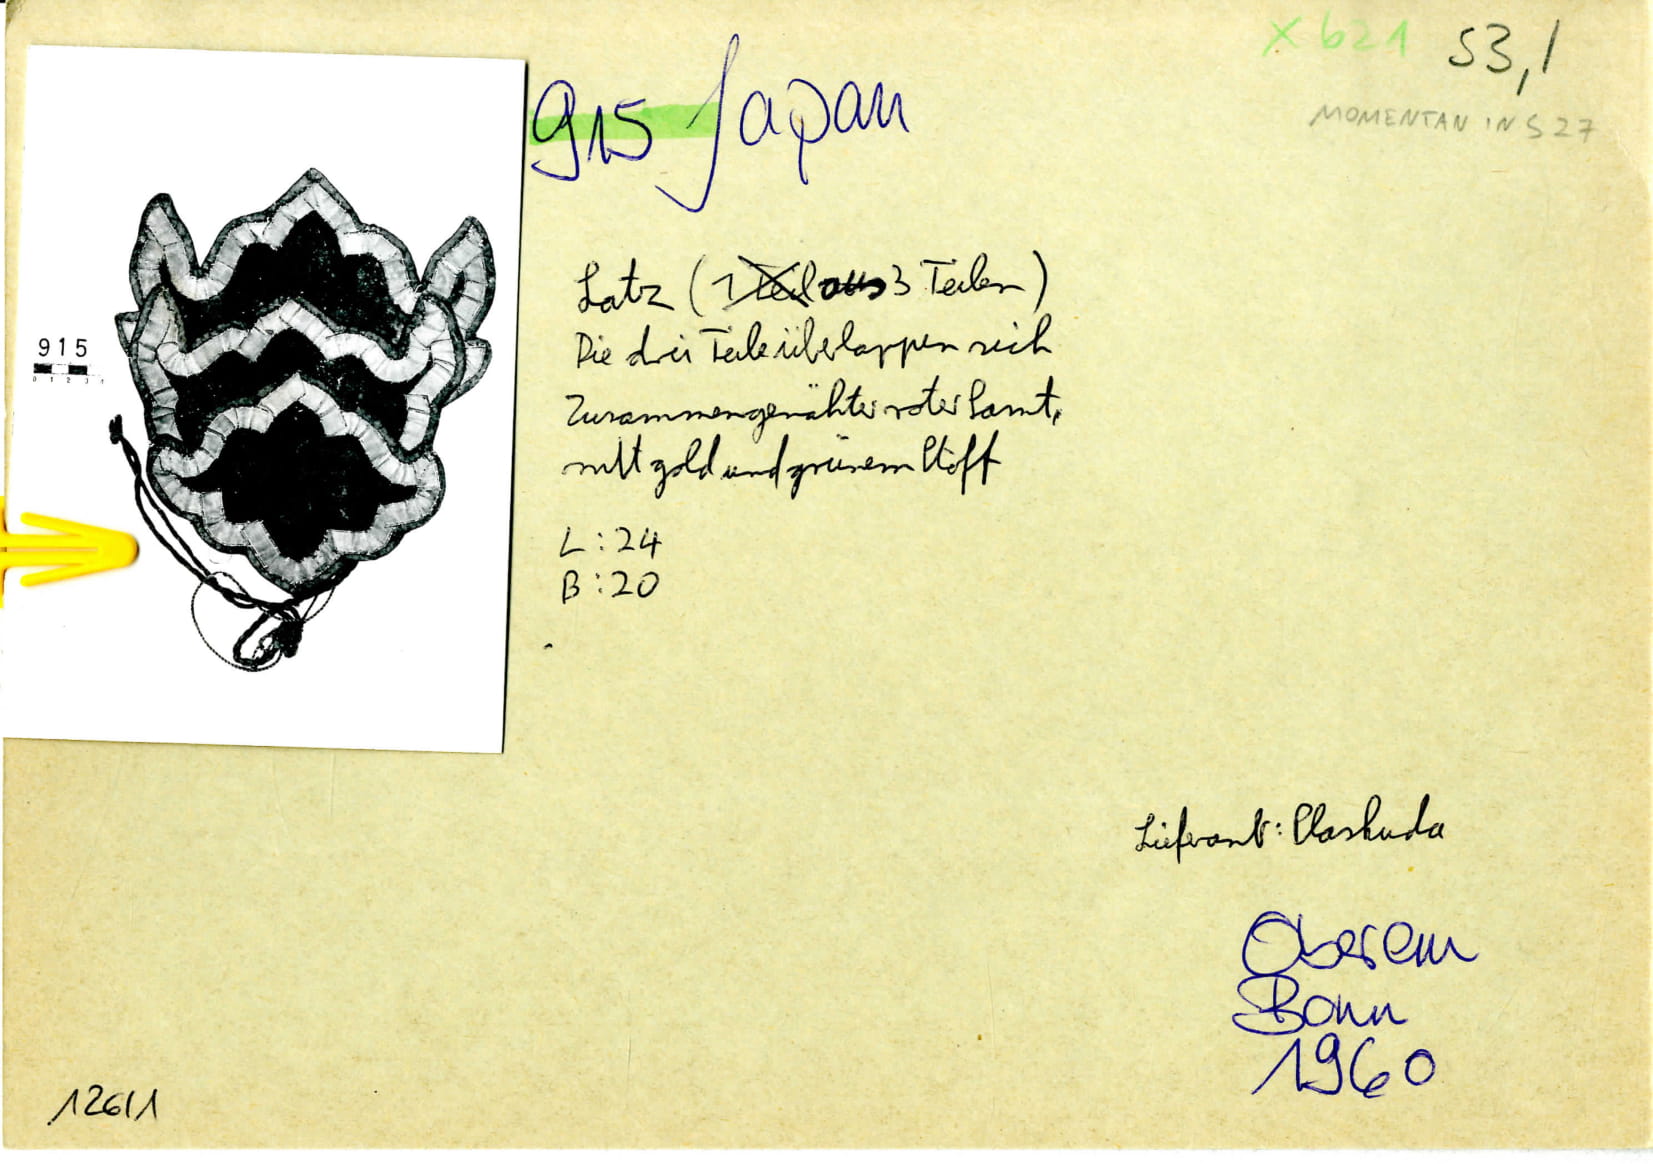 X 621 53,1
MOMENTAN IN S 27
915 Japan
Latz (1 Teil aus 3 Teilen)
Die drei Teile überlappen sich
Zusammengenähter roter Samt,
mit gold und grünem Stoff
L: 24
B: 20
915
0 1 2 3 4
Lieferant: Plaskuda
Oberem
Bonn
1960
126/1